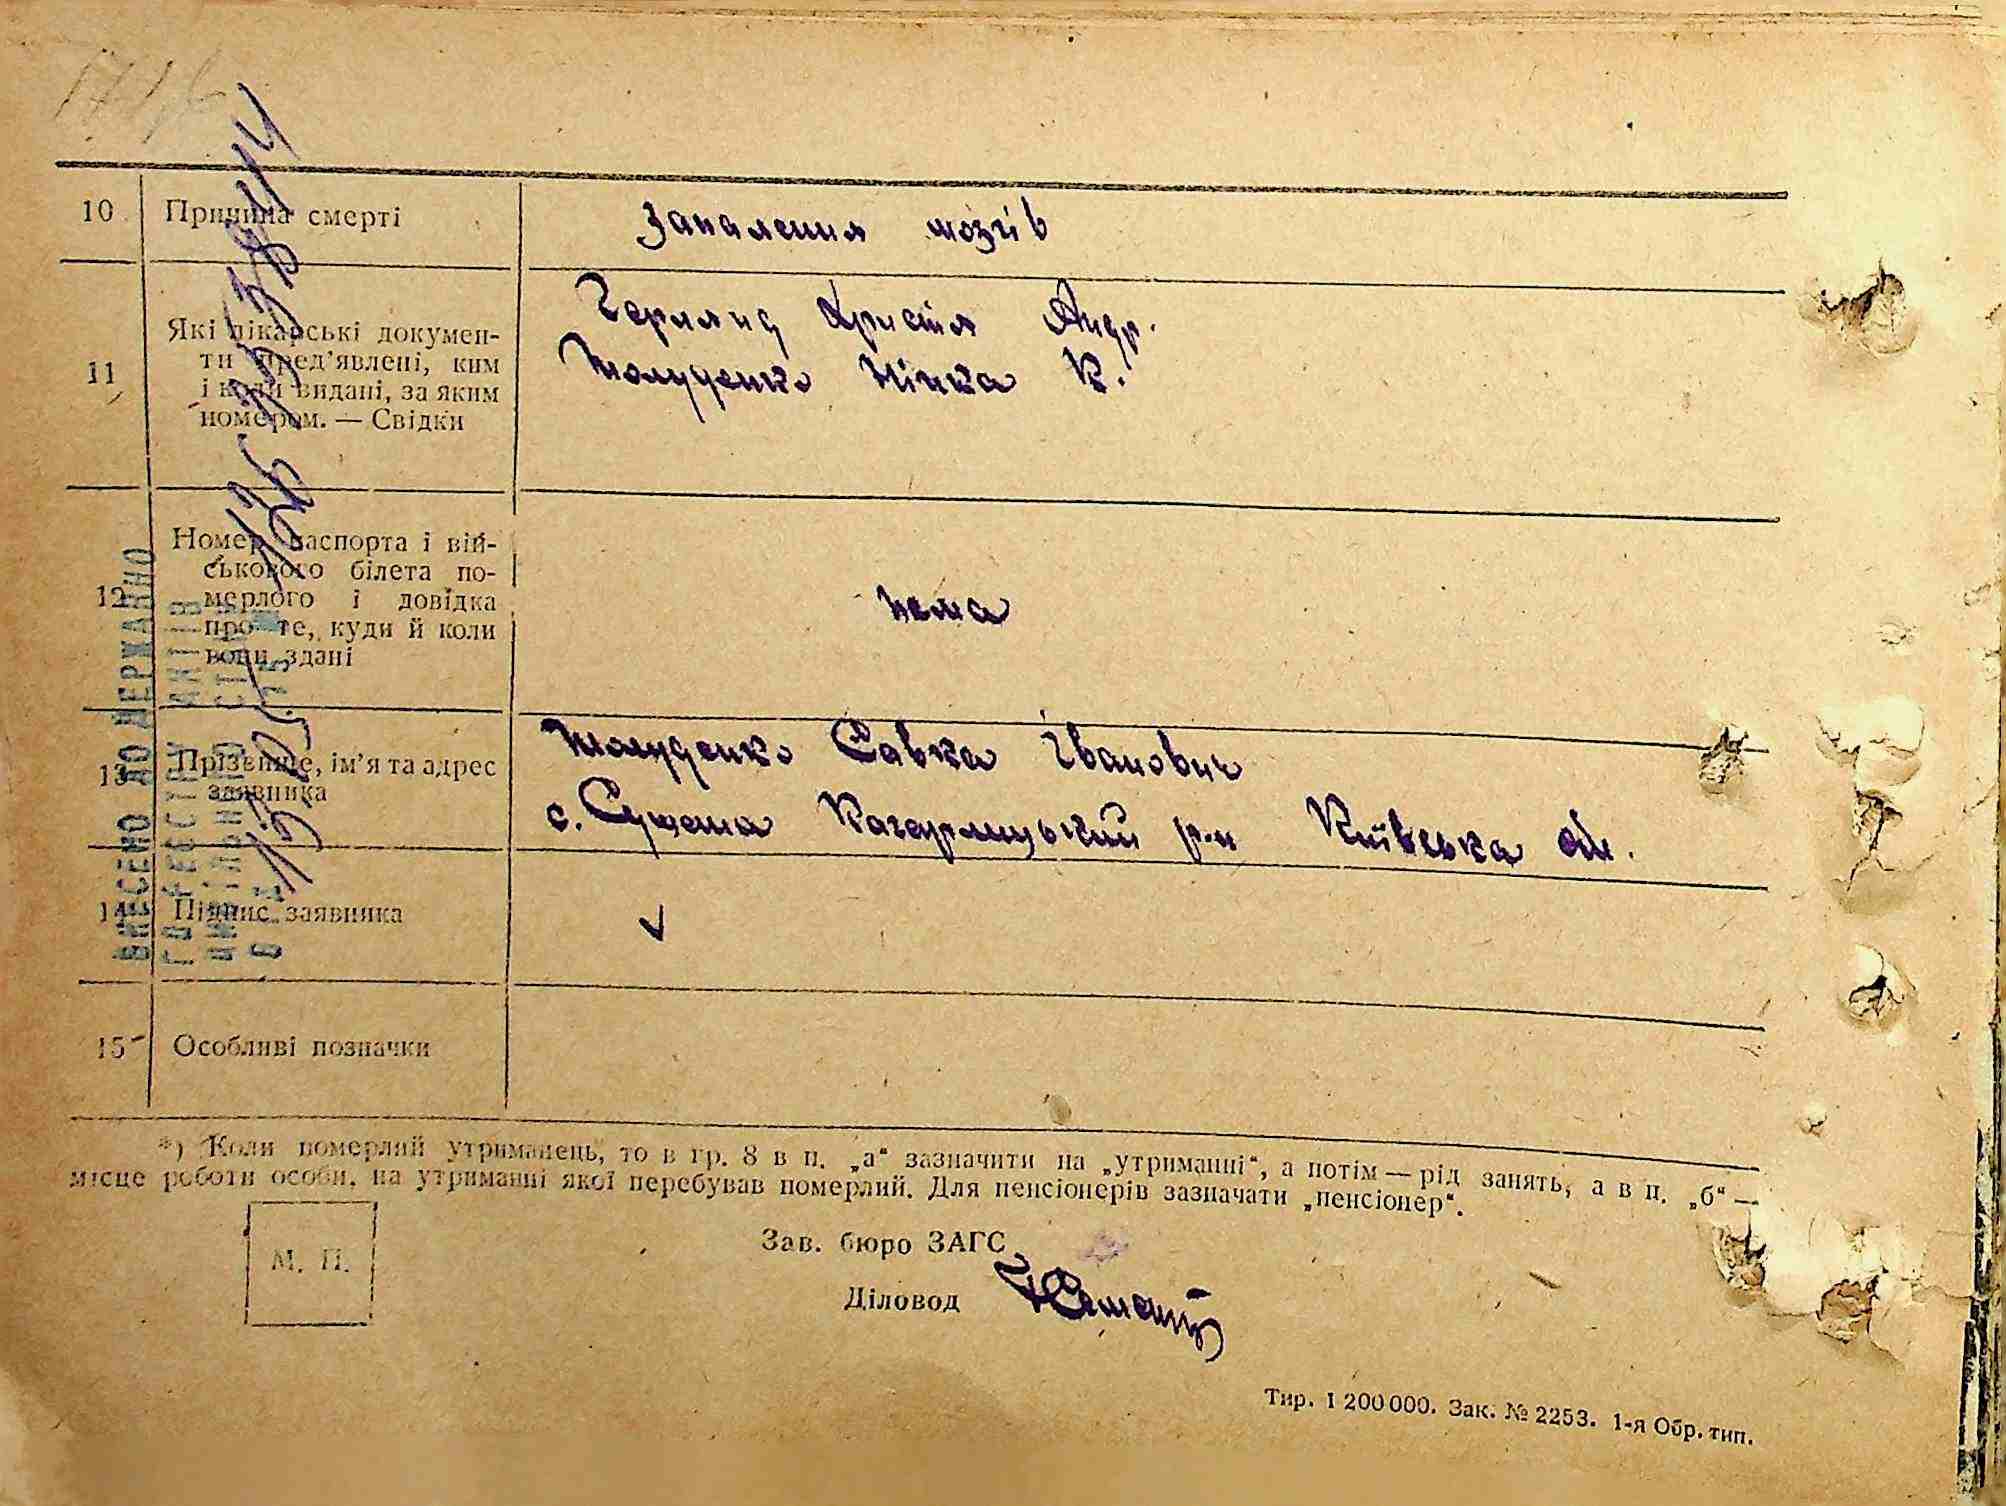 10 Причина смерті Запалення мозгів
11 Які лікарські докумен-
ти пред'явлені, ким
і коли видані, за яким
номером. — Свідки
Христя Андр.
Толуденко Нінка К.
12 Номер паспорта і вій-
ськового білета по-
мерлого і довідка
про те, куди й коли
вони здані
нема
13 Прізвище, ім'я та адрес
заявника
Толуденко Савка Іванович
с. Сущана Кагарлицький р-н Київська обл.
14 Підпис заявника
V
15 Особливі позначки
*) Коли померлий утриманець, то в гр. 8 в п. „а“ зазначити на „утриманні“, а потім — рід занять, а в п. „б“ —
місце роботи особи, на утриманні якої перебував померлий. Для пенсіонерів зазначати „пенсіонер“.
М. П.
Зав. бюро ЗАГС
Діловод
Тир. 1 200 000. Зак. № 2253. 1-я Обр. тип.
ВНЕСЕНО ДО ДЕРЖАВНО
ГО РЕЄСТРУ АКТІВ
ЦИВІЛЬНОГО СТАНУ